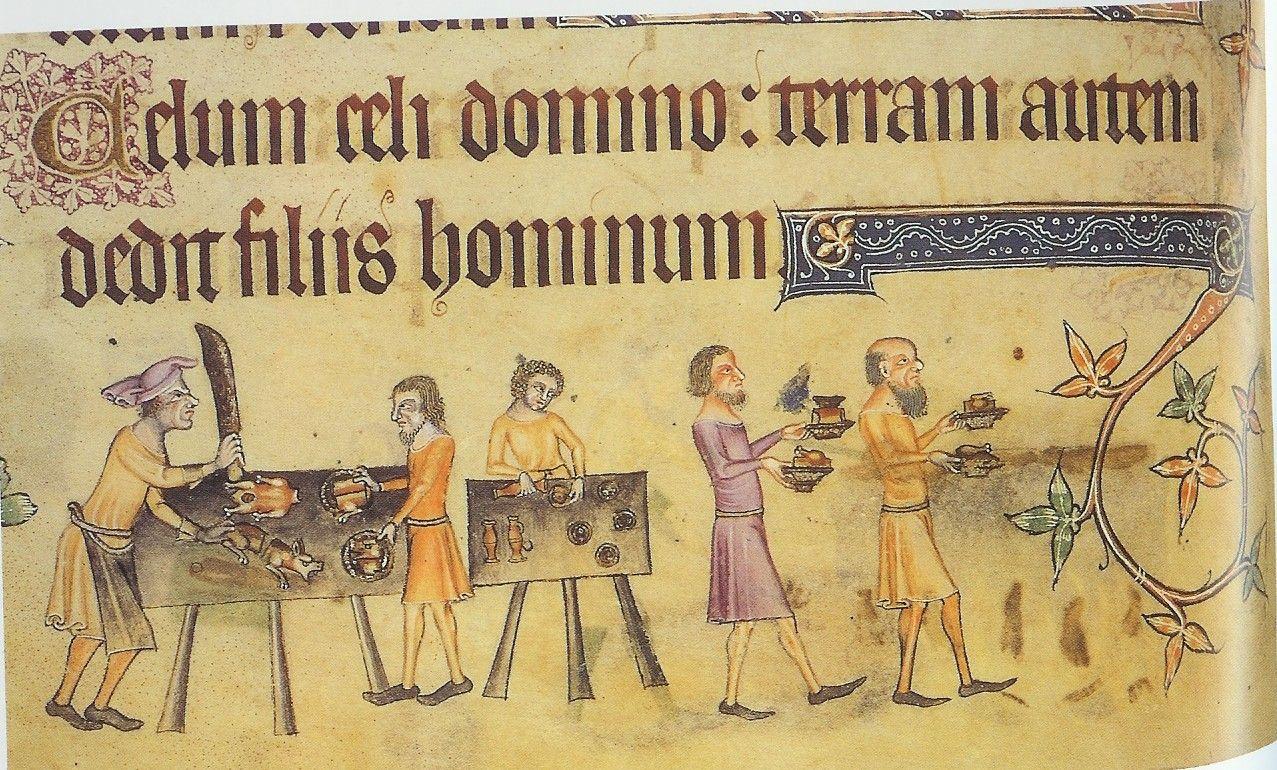 Celum celi domino: terram autem
dedit filiis hominum.